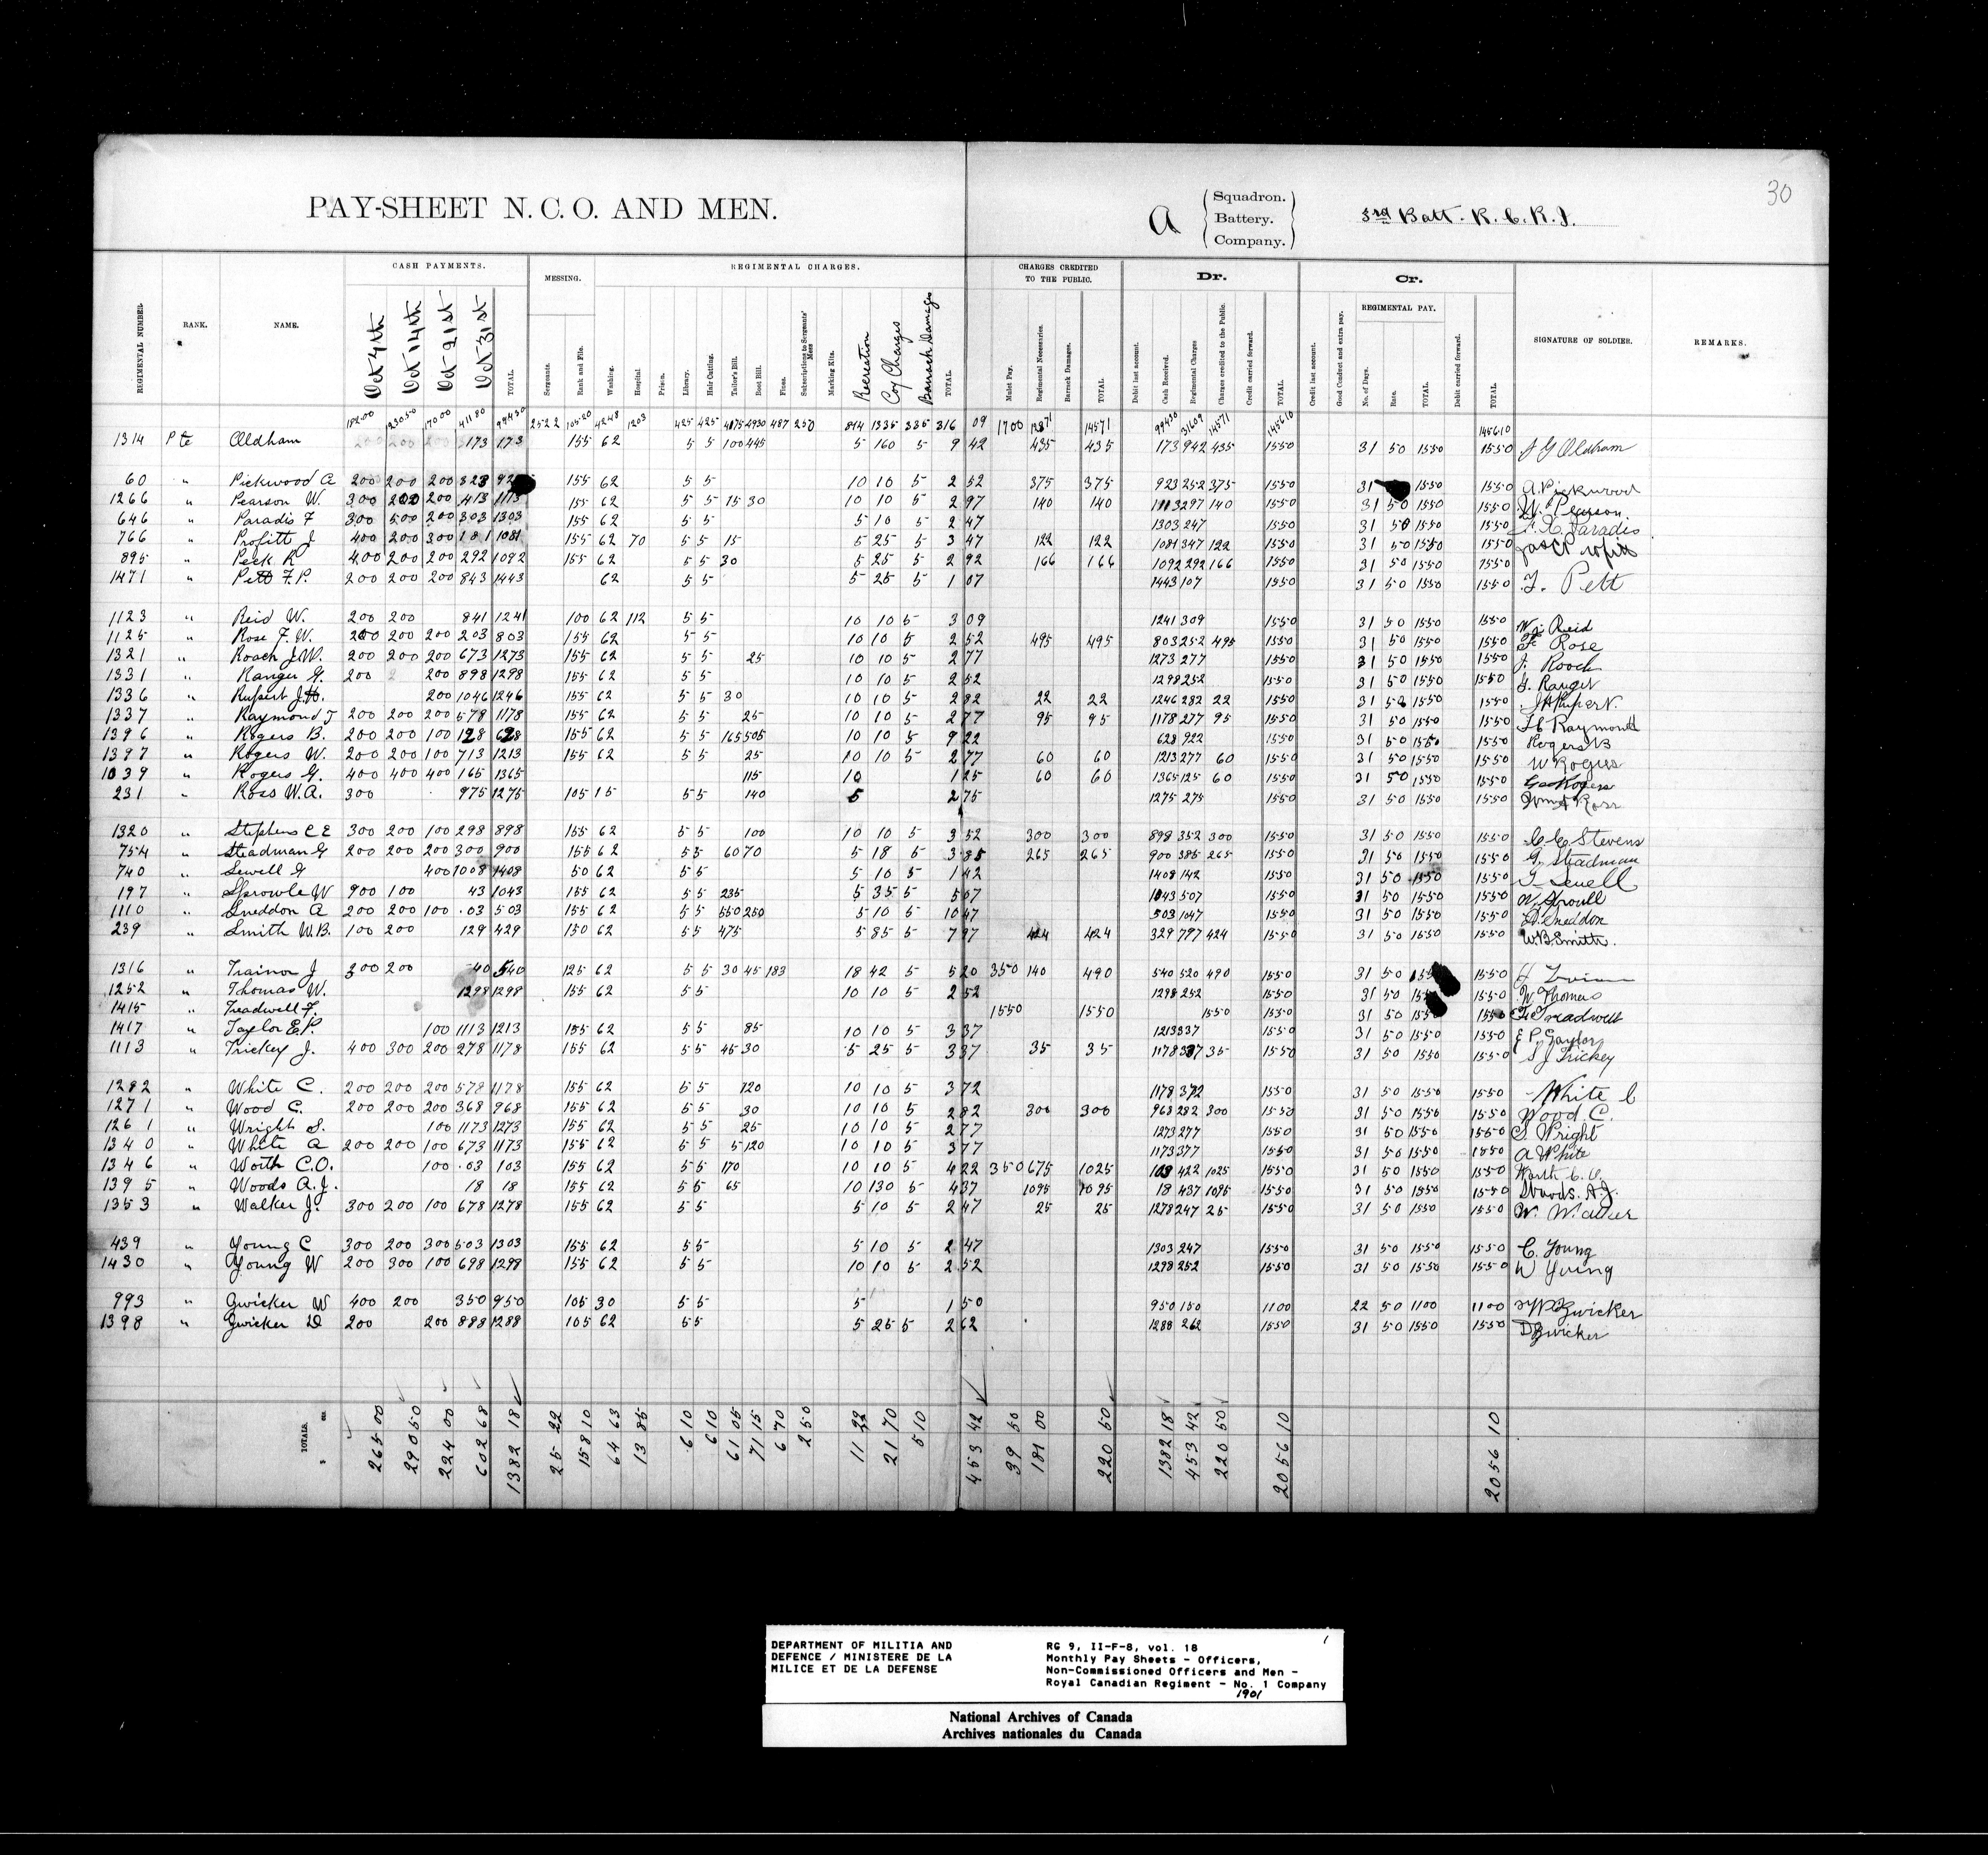 30
PAY-SHEET N. C. O. AND MEN.
a
Squadron.
Battery.
Company.
3rd Batt. R. C. R. I.
REGIMENTAL NUMBER
RANK.
NAME.
CASH PAYMENTS.
Oct 4th
Oct 14th
Oct 21st
Oct 31st
TOTAL.
MESSING.
Sergeants.
Rank and File.
REGIMENTAL CHARGES.
Washing.
Hospital.
Prison.
Library.
Hair Cutting.
Tailor's Bill.
Boot Bill.
Fines.
Subscriptions to Sergeants' Mess
Marking Kits.
Recreation
Coy Charges
Barrack Damages
TOTAL.
CHARGES CREDITED
TO THE PUBLIC.
Mulct Pay.
Regimental Necessaries.
Barrack Damages.
TOTAL.
Dr.
Debit last account.
Cash Received.
Regimental Charges
Charges credited to the Public.
Credit carried forward.
TOTAL.
Cr.
Credit last account.
Good Conduct and extra pay.
REGIMENTAL PAY.
No. of Days.
Rate.
TOTAL.
Debit carried forward.
TOTAL.
SIGNATURE OF SOLDIER.
REMARKS.
18200 23050 17000 41180 99430 2522 10520 4248 1203 425 425 4175 4930 487 250 814 1335 335 316 09 1700 12871 14571 99430 31609 14571 145610 145610
1314 Pte Oldham 200 200 200 173 173 155 62 5 5 100 445 5 160 5 9 42 435 435 173 942 435 1550 31 50 1550 1550 J G Oldham
60 " Pickwood A 200 200 200 323 155 62 5 5 10 10 5 2 52 375 375 923 252 375 1550 31 1550 1550 A. Pickwood
1266 " Pearson W 300 200 200 413 1113 155 62 5 5 15 30 10 10 5 2 97 140 140 1113 297 140 1550 31 50 1550 1550 W. Pearson
646 " Paradis F 300 500 200 303 1303 155 62 5 5 5 10 5 2 47 1303 247 1550 31 50 1550 1550 Paradis
766 " Profitt J 400 200 300 181 1081 155 62 70 5 5 15 5 25 5 3 47 122 122 1081 347 122 1550 31 50 1550 1550 Profitt
895 " Peck R 400 200 200 292 1092 155 62 5 5 30 5 25 5 2 92 166 166 1092 292 166 1550 31 50 1550 1550
1471 " Pett F.P. 200 200 200 843 1443 62 5 5 5 25 5 1 07 1443 107 1550 31 50 1550 1550 F. Pett
1123 " Reid W. 200 200 841 1241 100 62 112 5 5 10 10 5 3 09 1241 309 1550 31 50 1550 1550 W. Reid
1125 " Rose F.W. 200 200 200 203 803 155 62 5 5 10 10 5 2 52 495 495 803 252 495 1550 31 50 1550 1550 F Rose
1321 " Roach J.W. 200 200 200 673 1273 155 62 5 5 25 10 10 5 2 77 1273 277 1550 31 50 1550 1550 J. Roach
1331 " Ranger G. 200 200 898 1298 155 62 5 5 10 10 5 2 52 1298 252 1550 31 50 1550 1550 G. Ranger
1336 " Rupert J.H. 200 1046 1246 155 62 5 5 30 10 10 5 2 82 22 22 1246 282 22 1550 31 50 1550 1550 J H Rupert
1337 " Raymond J 200 200 200 578 1178 155 62 5 5 25 10 10 5 2 77 95 95 1178 277 95 1550 31 50 1550 1550 Raymond
1396 " Rogers B. 200 200 100 128 628 155 62 5 5 165 505 10 10 5 9 22 628 922 1550 31 50 1550 1550 Rogers B
1397 " Rogers W. 200 200 100 713 1213 155 62 5 5 25 10 10 5 2 77 60 60 1213 277 60 1550 31 50 1550 1550 W Rogers
1039 " Rogers G. 400 400 400 165 1365 115 10 1 25 60 60 1365 125 60 1550 31 50 1550 1550 Geo Rogers
231 " Ross W.A. 300 975 1275 105 15 5 5 140 5 2 75 1275 275 1550 31 50 1550 1550 Wm A Ross
1320 " Stephens C E 300 200 100 298 898 155 62 5 5 100 10 10 5 3 52 300 300 898 352 300 1550 31 50 1550 1550 C E Stevens
754 " Steadman G 200 200 200 300 900 155 62 5 5 60 70 5 18 5 3 85 265 265 900 385 265 1550 31 50 1550 1550 G. Steadman
740 " Sewell G 400 1008 1408 50 62 5 5 5 10 5 1 42 1408 142 1550 31 50 1550 1550 G Sewell
197 " Sprowle W 900 100 43 1043 155 62 5 5 235 5 35 5 5 07 1043 507 1550 31 50 1550 1550 W Sproull
1110 " Sneddon A 200 200 100 .03 503 155 62 5 5 550 250 5 10 5 10 47 503 1047 1550 31 50 1550 1550 A. Sneddon
239 " Smith W.B. 100 200 129 429 150 62 5 5 475 5 85 5 7 97 424 424 329 797 424 1550 31 50 1550 1550 W.B Smith.
1316 " Trainor J 300 200 40 540 125 62 5 5 30 45 183 18 42 5 5 20 350 140 490 540 520 490 1550 31 50 1550
1252 " Thomas W. 1298 1298 155 62 5 5 10 10 5 2 52 1298 252 1550 31 50 1550 W Thomas
1415 " Treadwell F. 1550 1550 1550 1550 31 50 1550 1550 F Treadwell
1417 " Taylor E.P. 100 1113 1213 155 62 5 5 85 10 10 5 3 37 1213 337 1550 31 50 1550 1550 E P Taylor
1113 " Trickey J. 400 300 200 278 1178 155 62 5 5 45 30 5 25 5 3 37 35 35 1178 337 35 1550 31 50 1550 1550 S J Trickey
1282 " White C. 200 200 200 578 1178 155 62 5 5 120 10 10 5 3 72 1178 372 1550 31 50 1550 1550 White C
1271 " Wood C. 200 200 200 368 968 155 62 5 5 30 10 10 5 2 82 300 300 968 282 300 1550 31 50 1550 1550 Wood C.
1261 " Wright S. 100 1173 1273 155 62 5 5 25 10 10 5 2 77 1273 277 1550 31 50 1550 1550 S. Wright
1340 " White A 200 200 100 673 1173 155 62 5 5 5 120 10 10 5 3 77 1173 377 1550 31 50 1550 1550 A White
1346 " Worth C.O. 100 .03 103 155 62 5 5 170 10 10 5 4 22 350 675 1025 103 422 1025 1550 31 50 1550 1550 Worth C. O.
1395 " Woods A.J. 18 18 155 62 5 5 65 10 130 5 4 37 1095 1095 18 437 1095 1550 31 50 1550 1550 Woods. A.J.
1353 " Walker J. 300 200 100 678 1278 155 62 5 5 5 10 5 2 47 25 25 1278 247 25 1550 31 50 1550 1550 W. Walker
439 " Young C 300 200 300 503 1303 155 62 5 5 5 10 5 2 47 1303 247 1550 31 50 1550 1550 C. Young
1430 " Young W 200 300 100 698 1298 155 62 5 5 10 10 5 2 52 1298 252 1550 31 50 1550 1550 W Young
993 " Zwicker W 400 200 350 950 105 30 5 5 5 1 50 950 150 1100 22 50 1100 1100 W Zwicker
1398 " Zwicker D 200 200 888 1288 105 62 5 5 5 25 5 2 62 1288 262 1550 31 50 1550 1550 D Zwicker
TOTALS. $ 265 00 290 50 224 00 602 68 1382 18 25 22 158 10 64 63 13 85 6 10 6 10 61 05 71 15 6 70 2 50 11 22 21 70 5 10 453 42 39 50 181 00 220 50 1382 18 453 42 220 50 2056 10 2056 10
DEPARTMENT OF MILITIA AND
DEFENCE / MINISTERE DE LA
MILICE ET DE LA DEFENSE
RG 9, II-F-8, vol. 18
Monthly Pay Sheets - Officers,
Non-Commissioned Officers and Men -
Royal Canadian Regiment - No. 1 Company
1901
National Archives of Canada
Archives nationales du Canada